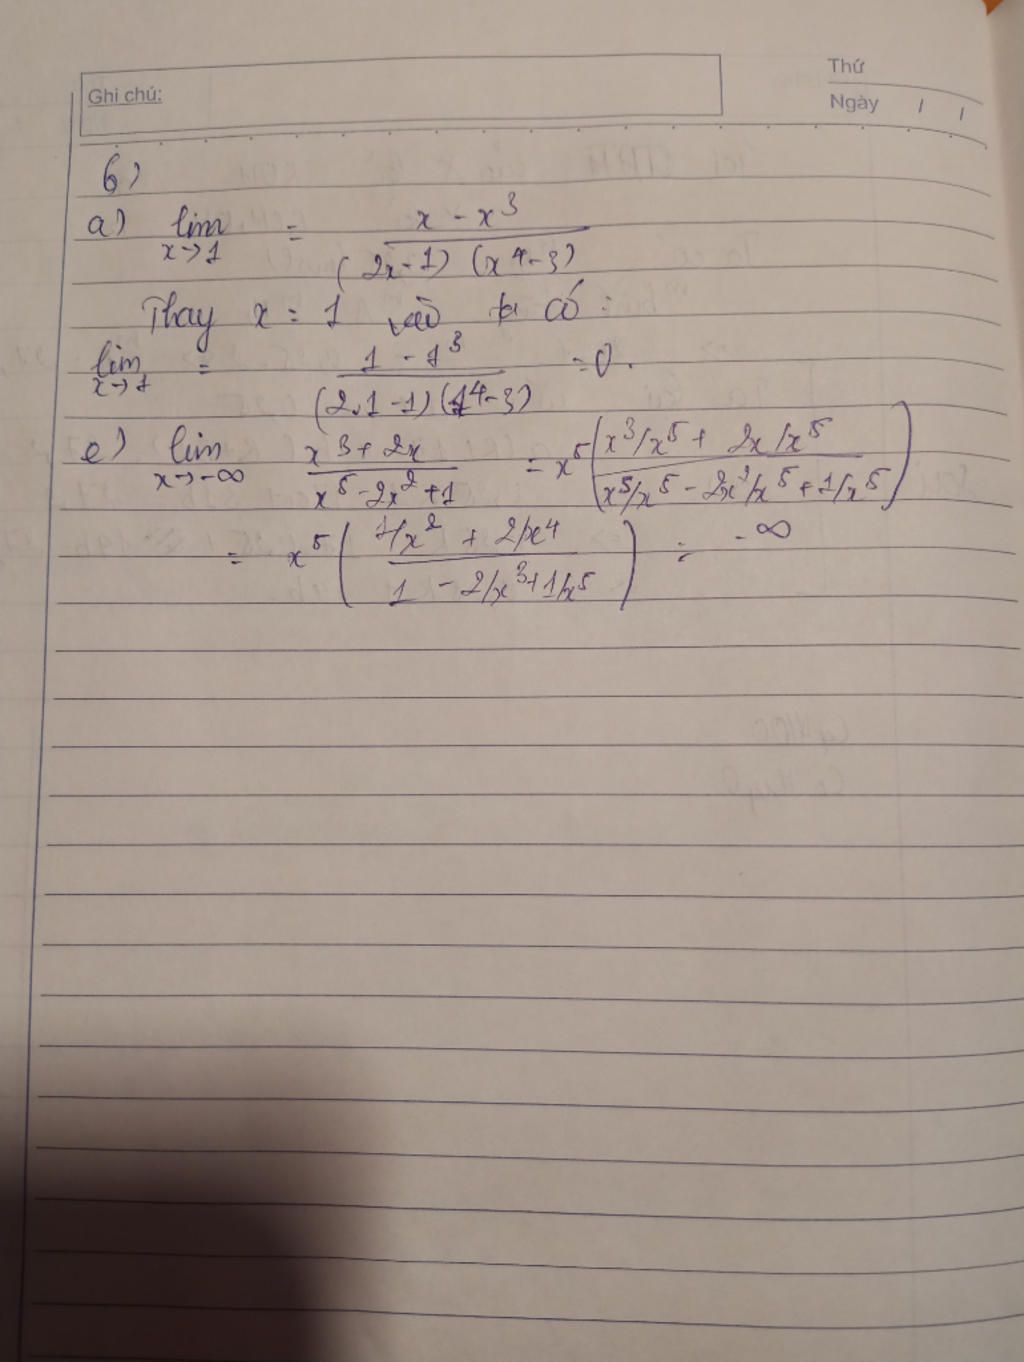 Ghi chú:
Thứ
Ngày / /
6)
a) lim x→1 = x - x³ / (2x-1) (x⁴-3)
Thay x = 1 vào ta có :
lim x→1 = 1 - 1³ / (2.1-1)(1⁴-3) = 0.
e) lim x→-∞ x³+2x / x⁵-2x²+1 = x⁵ (x³/x⁵ + 2x/x⁵ / x⁵/x⁵ - 2x²/x⁵ + 1/x⁵)
= x⁵ (1/x² + 2/x⁴ / 1 - 2/x³+1/x⁵) = -∞